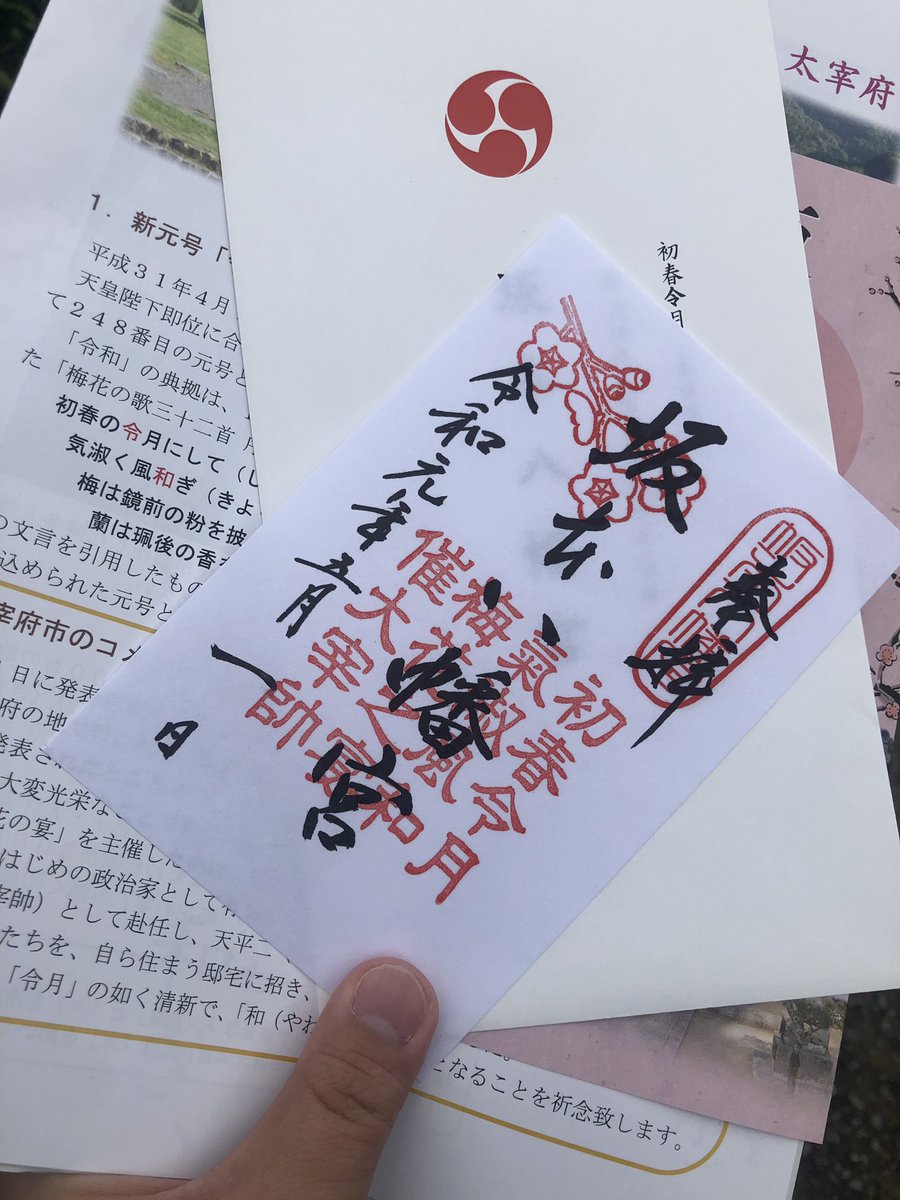 太宰府
初春令月
1. 新元号「
平成31年4月
天皇陛下即位に合
て248番目の元号と
「令和」の典拠は、
た「梅花の歌三十二首
初春の令月にして（し
気淑く風和ぎ（きよ
梅は鏡前の粉を披
蘭は珮後の香
の文言を引用したもの
込められた元号と
宰府市のコメ
日に発表
府の地
発表さ
大変光栄な
花の宴」を主催した
はじめの政治家として
宰帥）として赴任し、天平二
たちを、自ら住まう邸宅に招き、
「令月」の如く清新で、「和（やわ
となることを祈念致します。
奉拝
坂本八幡宮
令和元年五月一日
初春令月
氣淑風和
梅花之宴
催大宰帥